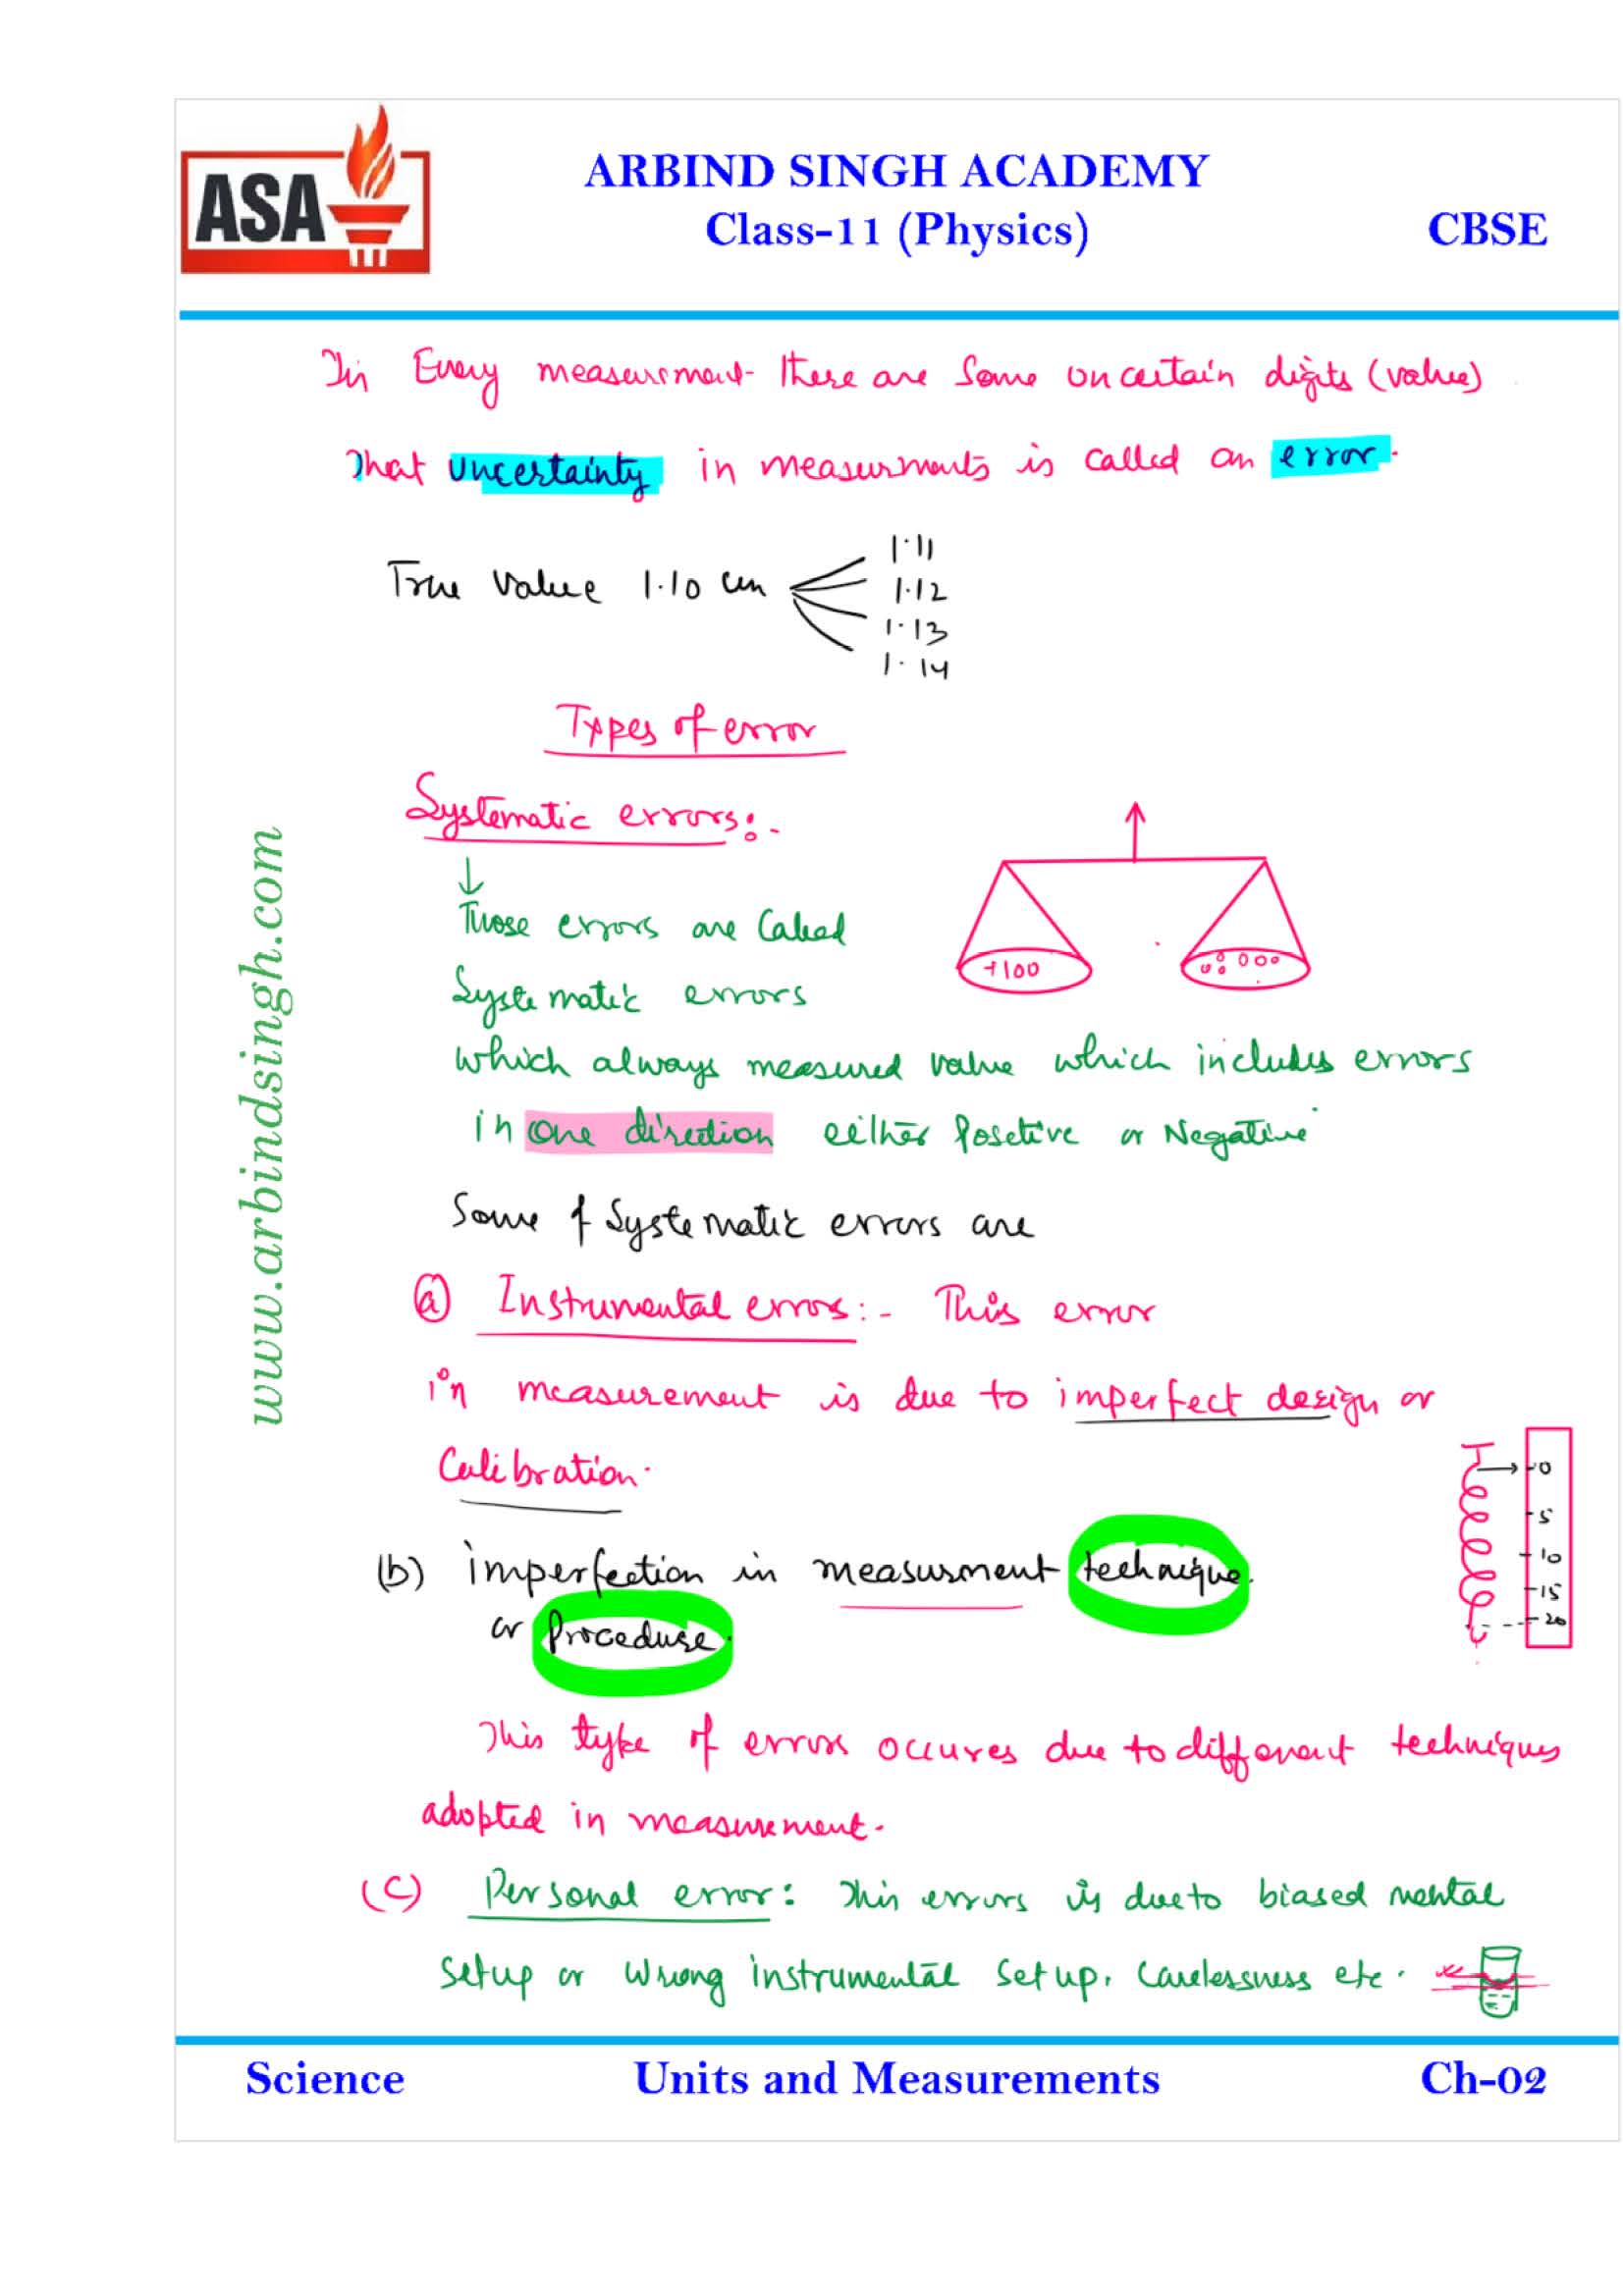 ASA
ARBIND SINGH ACADEMY
Class-11 (Physics)
CBSE
In Every measurement there are Some uncertain digits (value)
That Uncertainty in measurments is called an error.
True Value 1.10 cm
1.11
1.12
1.13
1.14
Types of error
Systematic errors:-
Those errors are Called
Systematic errors
+100
which always measured value which includes errors
in one direction either Posetive or Negative
Some of Systematic errors are
(a) Instrumental errors:- This error
in measurement is due to imperfect design or
Calibration.
0
5
10
15
20
(b) imperfection in measurment technique.
or Procedure.
This type of errors occures due to different techniques
adopted in measurement.
(C) Personal error: This errors is due to biased mental
Setup or Wrong instrumental Setup. Carelessness etc.
www.arbindsingh.com
Science
Units and Measurements
Ch-02